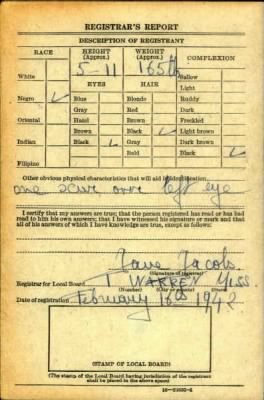 REGISTRAR'S REPORT
DESCRIPTION OF REGISTRANT
RACE HEIGHT (Approx.) WEIGHT (Approx.) COMPLEXION
5-11 165
White Sallow
EYES HAIR Light
Negro ✓ Blue Blonde Ruddy
Gray Red Dark
Oriental Hazel Brown Freckled
Brown Black ✓ Light brown
Indian Black ✓ Gray Dark brown
Bald Black ✓
Filipino
Other obvious physical characteristics that will aid in identification
one scar over left eye
I certify that my answers are true; that the person registered has read or has had
read to him his own answers; that I have witnessed his signature or mark and that
all of his answers of which I have knowledge are true, except as follows:
Jacob
(Signature of registrar)
Registrar for Local Board 1 WARREN Miss.
(Number) (City or county) (State)
Date of registration February 16th 1942
(STAMP OF LOCAL BOARD)
(The stamp of the Local Board having jurisdiction of the registrant
shall be placed in the above space)